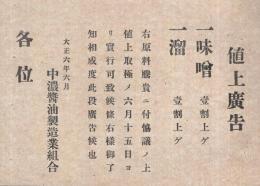 値上廣告
一味噌 壹割上ゲ
一溜 壹割上ゲ
右原料騰貴ニ付協議ノ上
値上取極メ六月十五日ヨ
リ實行可致候條右樣御了
知相成度此段廣告候也
大正六年六月
中濃醬油製造業組合
各位